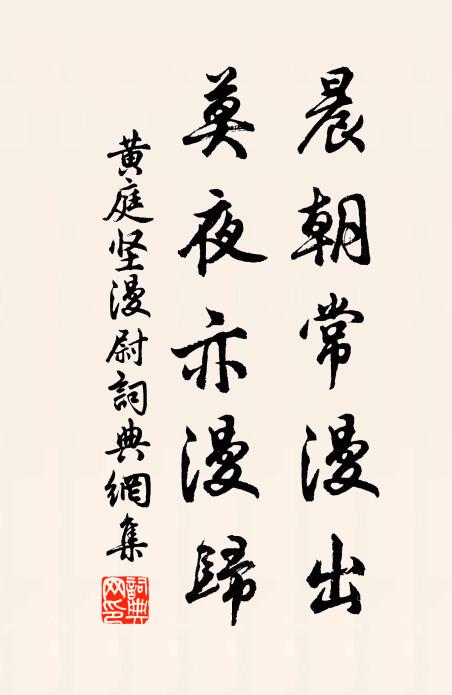 晨朝常漫出
莫夜亦漫歸
黄庭坚漫尉詞典網集
詞典網印